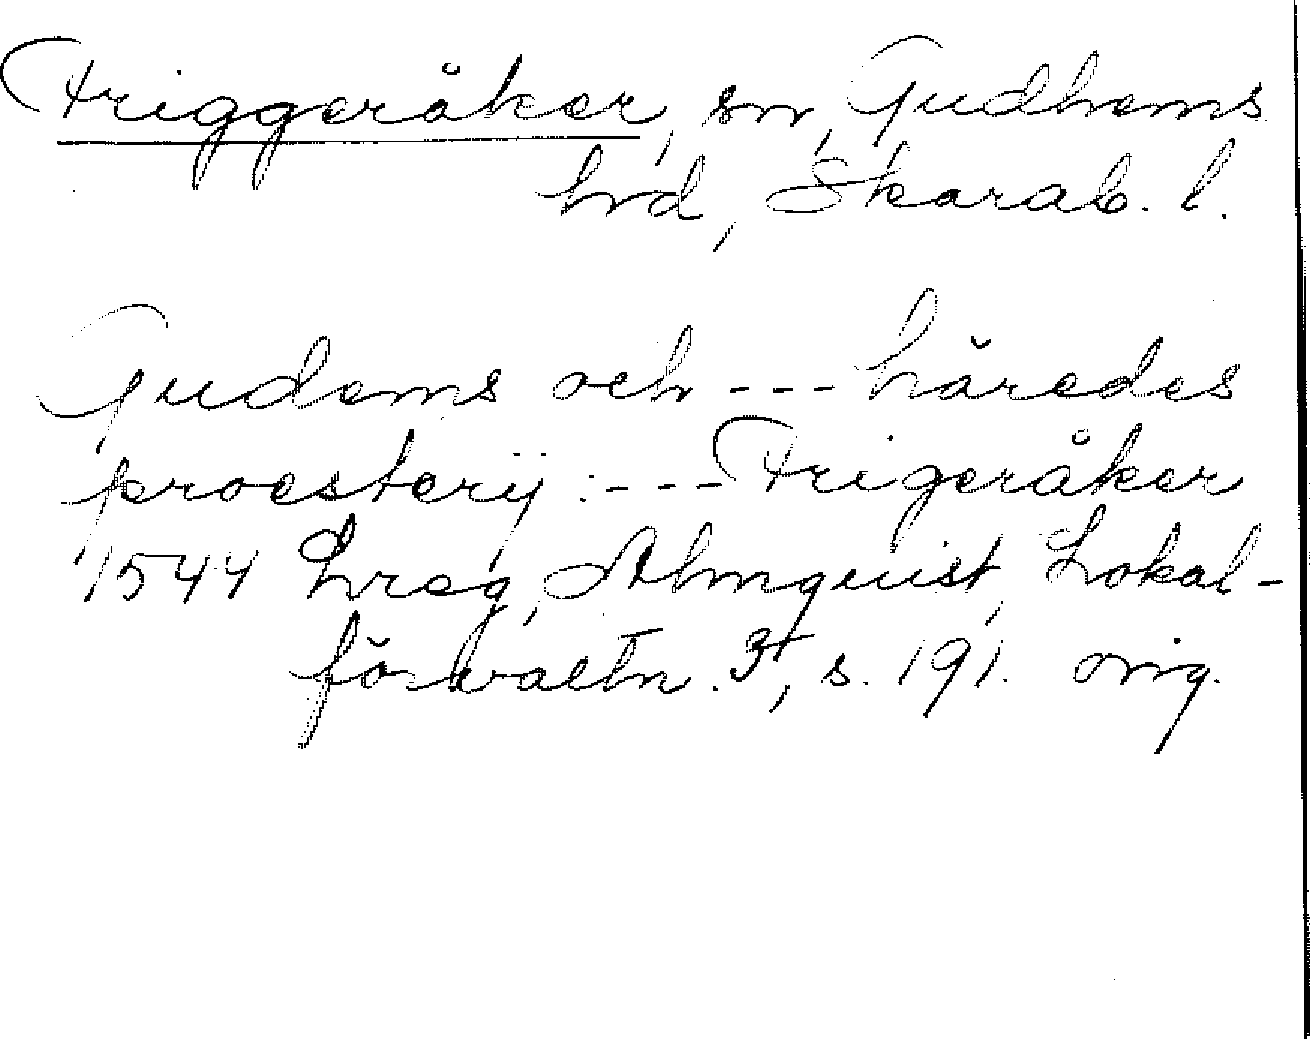 Friggeråker, sn, Gudhems
hrd, Skarab. l.
Gudems och --- häredes
proesterij: --- Frigeråker
1544 Lreg, Almquist, Lokal-
förvaltn. 3, s. 191. orig.